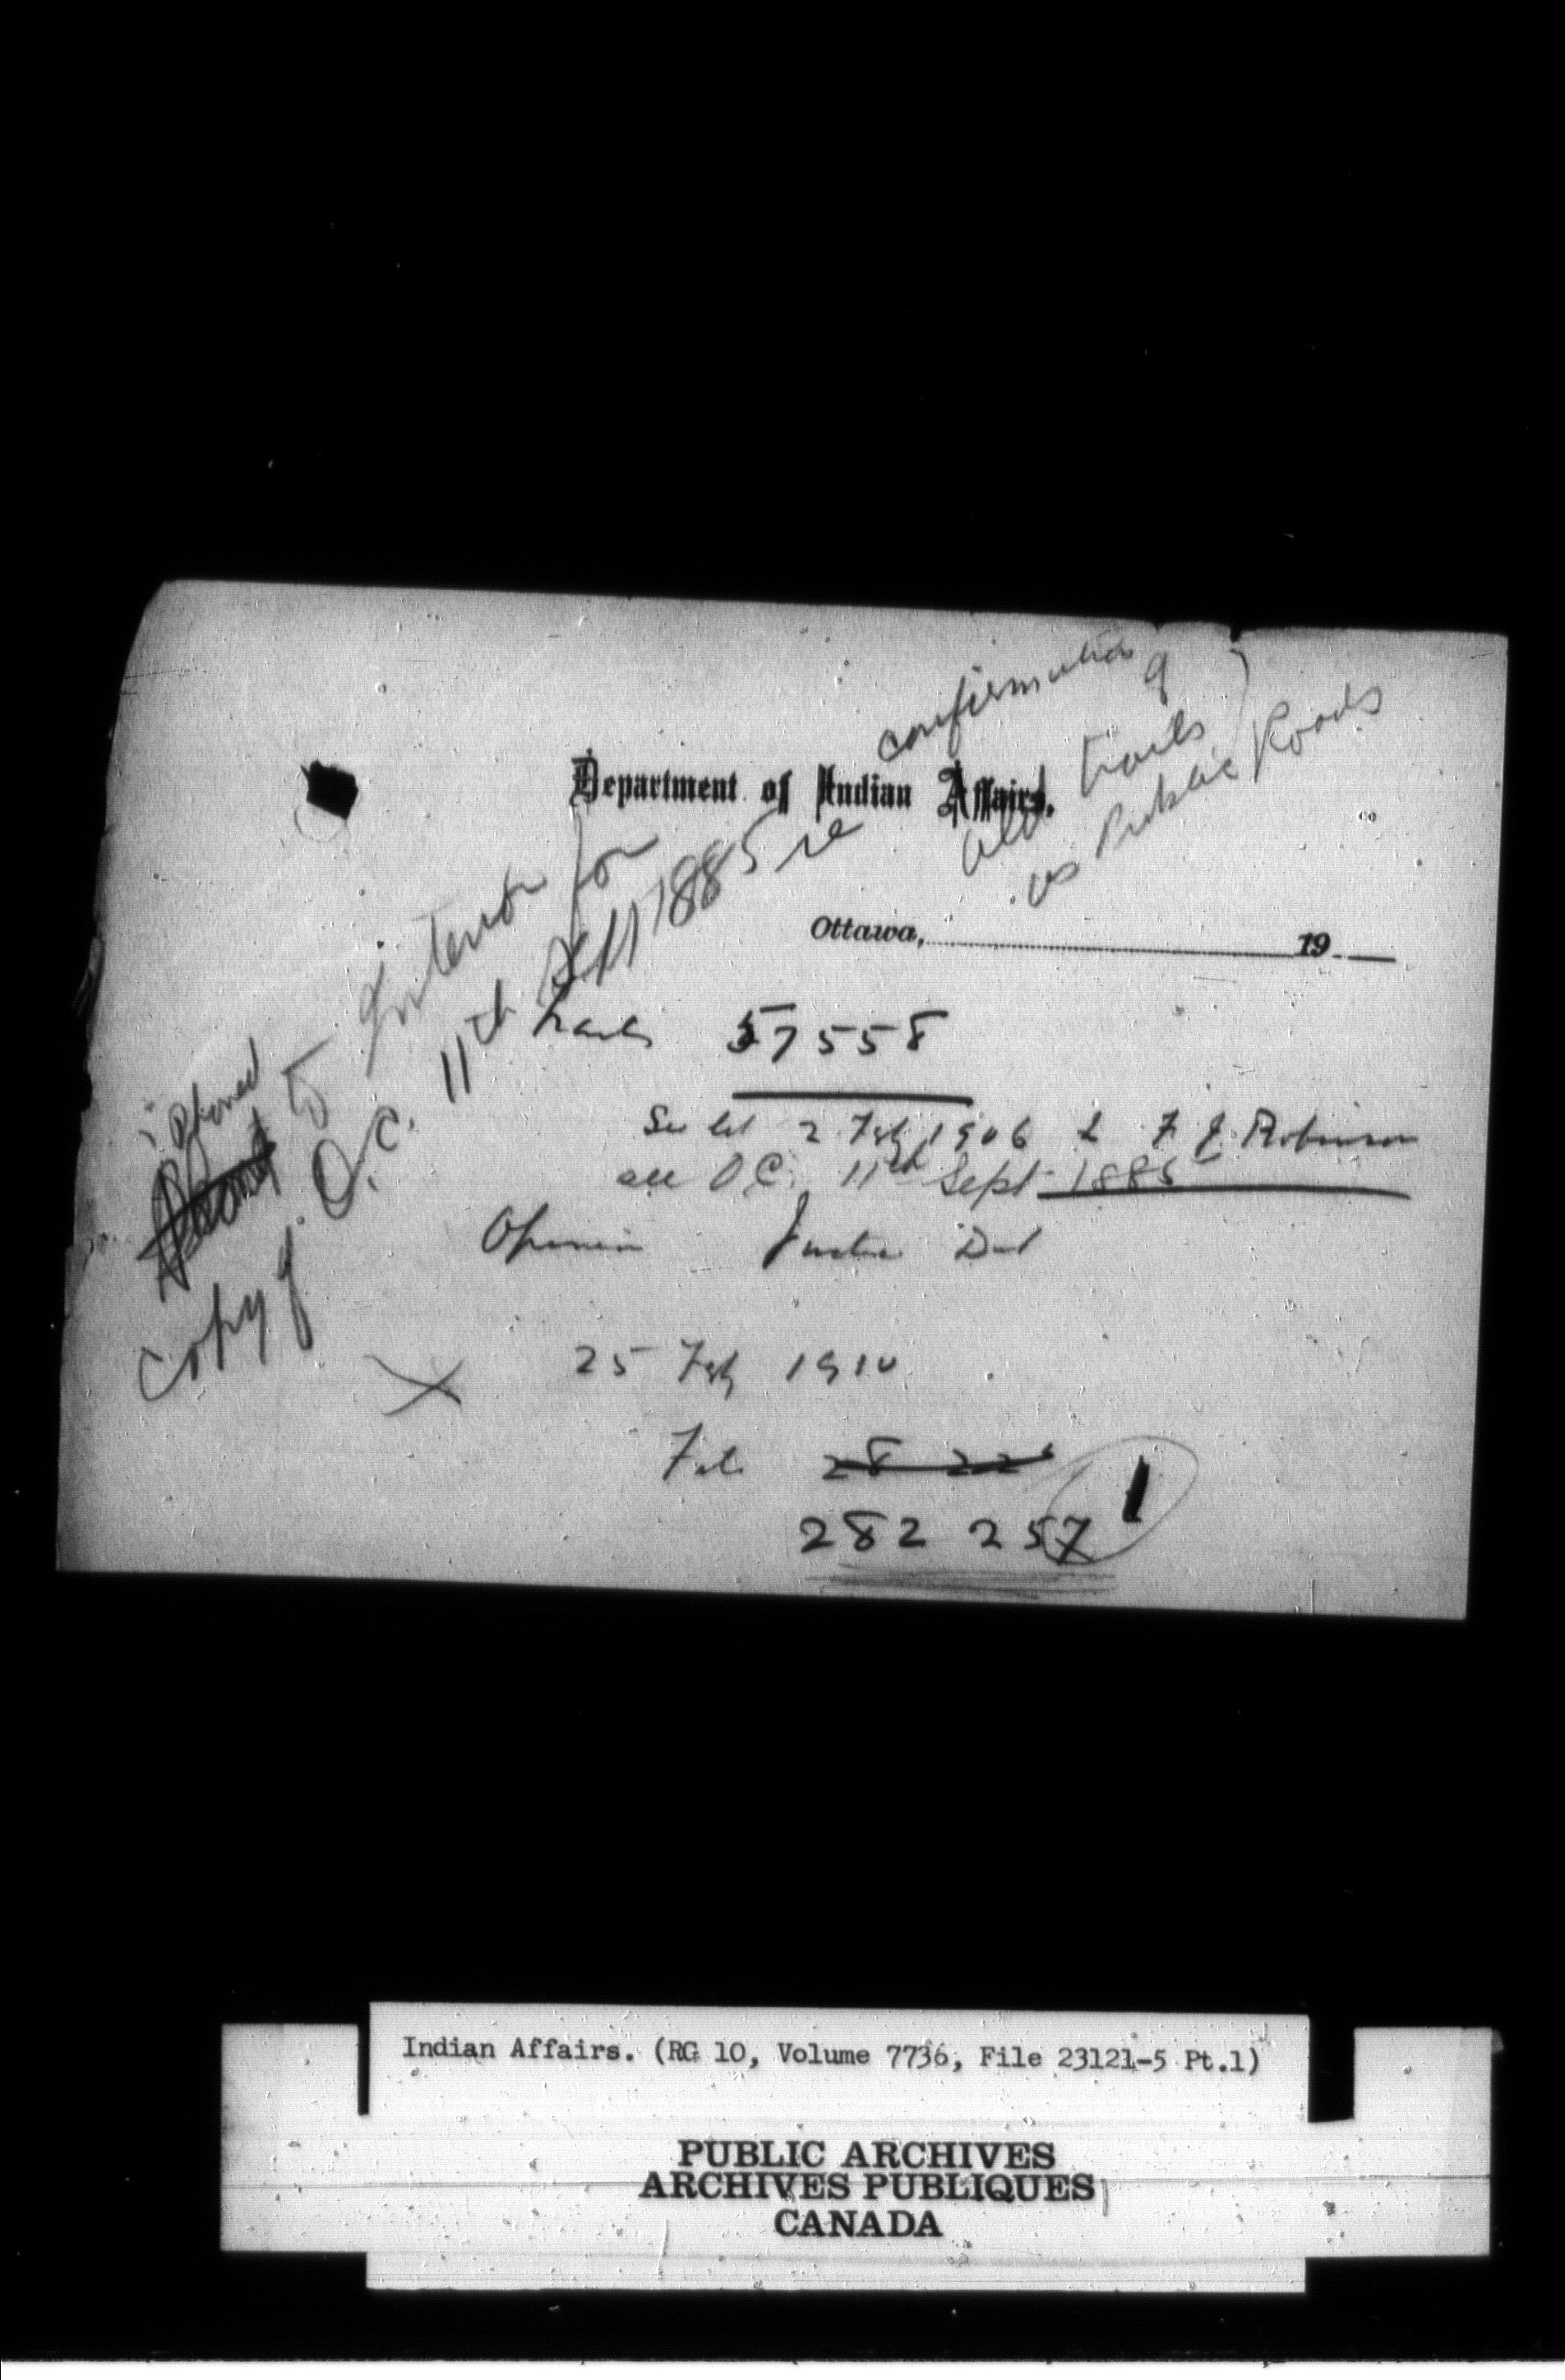 confirmation of
old trails
as Public Roads
Department of Indian Affairs.
Ottawa, 19
Phoned to Interior for
copy of O.C. 11th Sept 1885 re
trails 57558
See let 2 Feby 1906 to F J. Robinson
see O.C. 11th Sept 1885
Opinion Justice Dept
25 Feby 1910
File 28 22
282 257
1
Indian Affairs. (RG 10, Volume 7736, File 23121-5 Pt.1)
PUBLIC ARCHIVES
ARCHIVES PUBLIQUES
CANADA